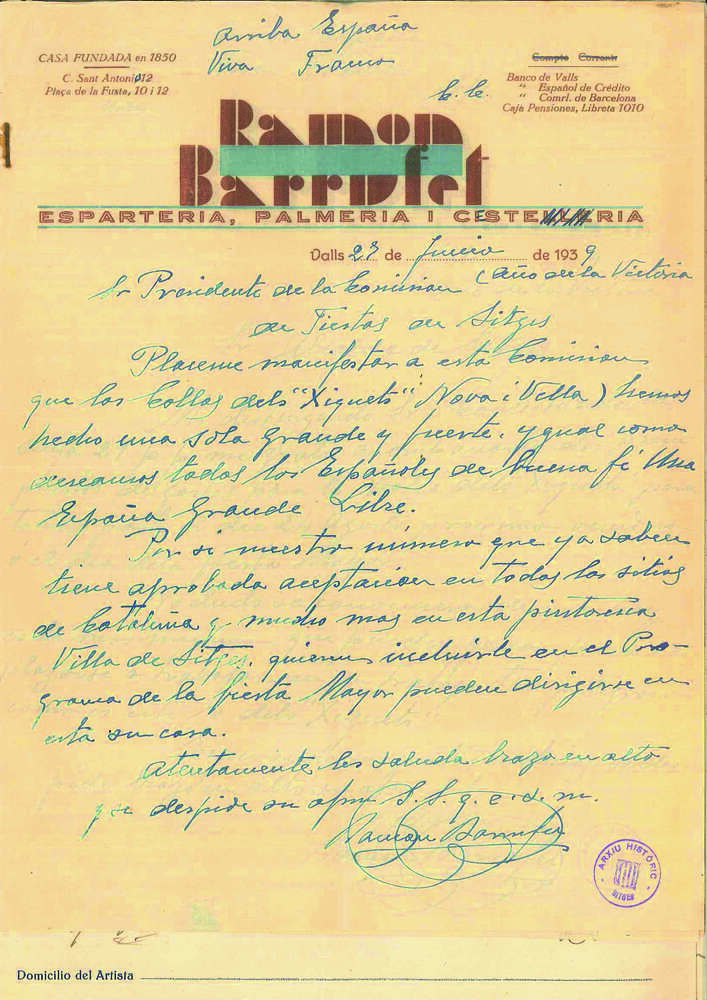 Arriba España
Viva Franco
CASA FUNDADA en 1850
C. Sant Antoni 12
Plaça de la Fusta, 10 i 12
Compte Corrent
Banco de Valls
“ Español de Crédito
“ Comrl. de Barcelona
Caja Pensiones, Libreta 1010
Ramon
Barrufet
ESPARTERIA, PALMERIA I CESTERIA
Valls 27 de Junio de 1939
(Año de la Victoria
Sr Presidente de la Comision
de Fiestas de Sitges
Placeme manifestar a esta Comision
que las Collas dels "Xiquets" Nova i Vella) hemos
hecho una sola grande y fuerte, ygual como
deseamos todos los Españoles de buena fé Una
España Grande Libre.
Por si nuestro número que ya saben
tiene aprobada aceptacion en todos los sitios
de Cataluña y mucho mas en esta pintoresca
Villa de Sitges, quieren incluirle en el Pro-
grama de la fiesta Mayor pueden dirigirse en
esta su casa.
Atentamente les saluda brazo en alto
y se despide su afm S. S. q. e. s. m.
Ramon Barrufet
ARXIU HISTÒRIC
SITGES
Domicilio del Artista